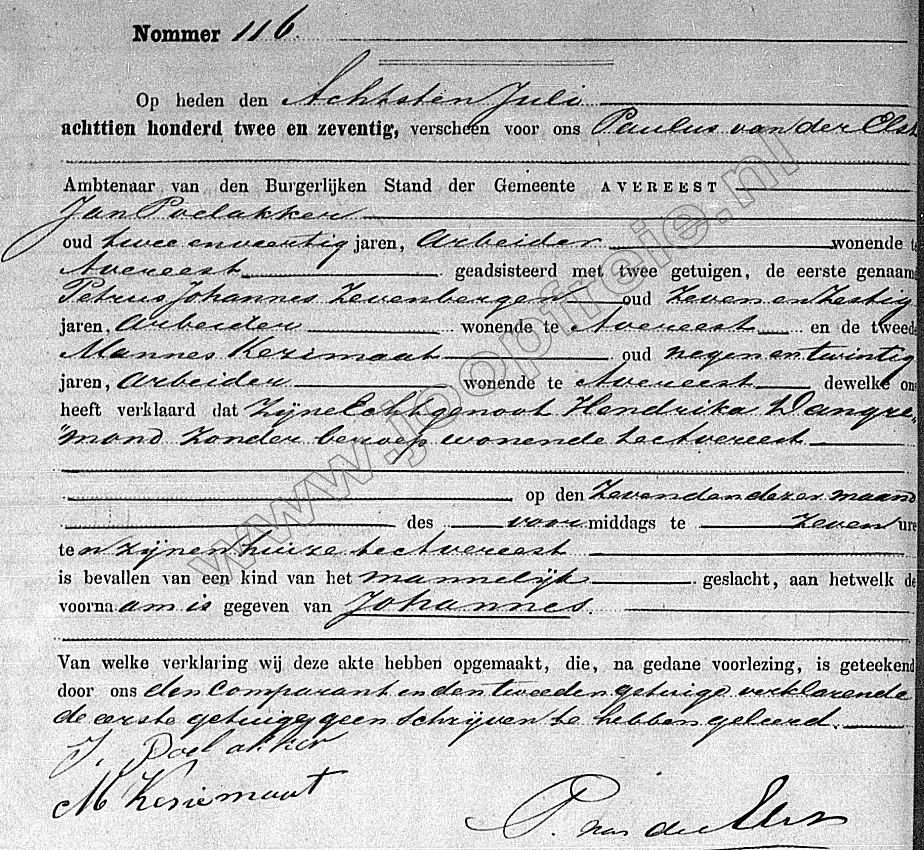 Nommer 116.
Op heden den Achtsten Juli
achttien honderd twee en zeventig, verscheen voor ons Paulus van der Elst
Ambtenaar van den Burgerlijken Stand der Gemeente AVEREEST
Jan Poelakker
oud twee en veertig jaren, Arbeider wonende te
Avereest geadsisteerd met twee getuigen, de eerste genaam
Petrus Johannes Zevenbergen oud Zeven en Zestig
jaren, Arbeider wonende te Avereest en de tweede
Mannes Kerimaat oud negen en twintig
jaren, Arbeider wonende te Avereest dewelke on
heeft verklaard dat Zijne Echtgenoot Hendrika Dangre
mond Zonder beroep wonende te Avereest
op den Zevenden dezer maand
des voor middags te Zeven ure
ten zijnen huize te Avereest
is bevallen van een kind van het mannelijk geslacht, aan hetwelk de
voornaam is gegeven van Johannes.
Van welke verklaring wij deze akte hebben opgemaakt, die, na gedane voorlezing, is geteekend
door ons den Comparant en den tweeden getuige verklarende
de eerste getuige geen schrijven te hebben geleerd.
J. Poelakker
M Keriemaut
P. van der Elst
www.joopfreie.nl